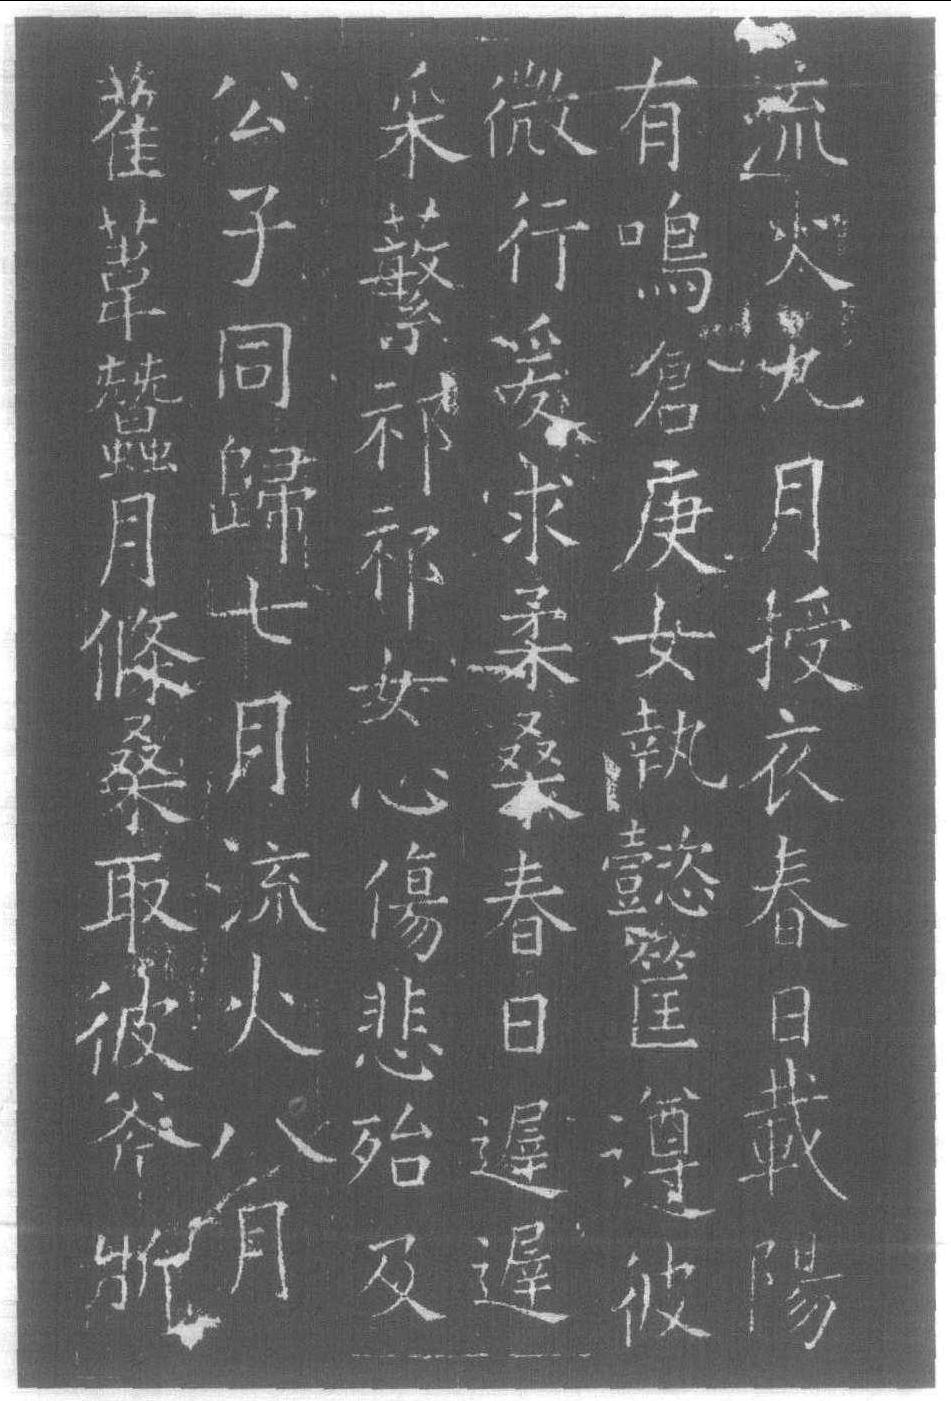 流火九月授衣春日載陽
有鳴倉庚女執懿筐遵彼
微行爰求柔桑春日遲遲
采蘩祁祁女心傷悲殆及
公子同歸七月流火八月
萑葦蠶月條桑取彼斧斨